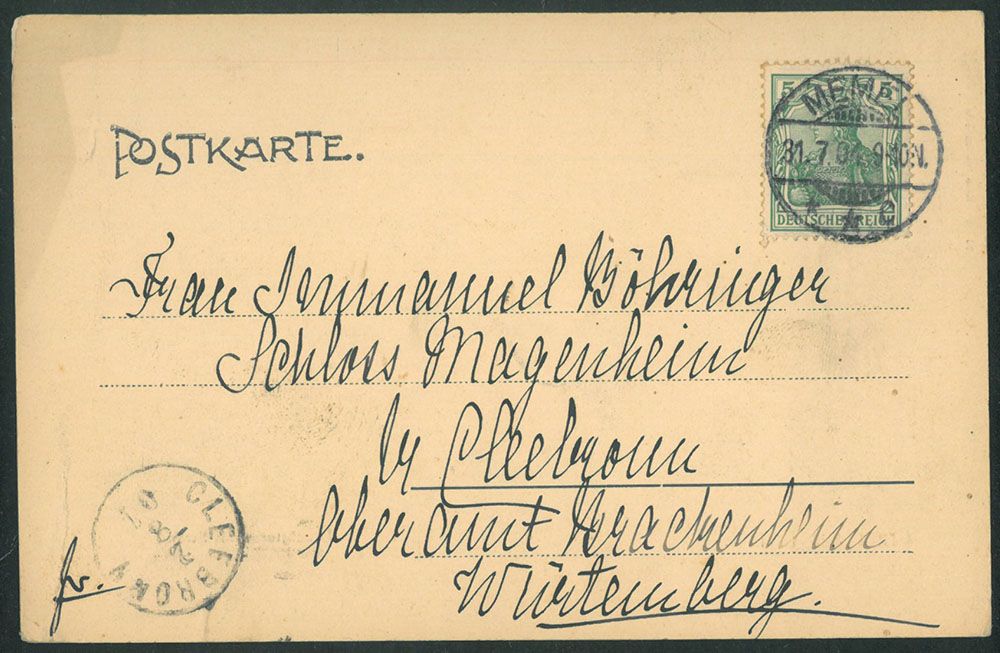 POSTKARTE.
5 5
DEUTSCHES REICH
MEMEL
31.7.04. 9-10N.
Frau Immanuel Böhringer
Schloss Magenheim
br Cleebronn
Oberamt Brackenheim
Würtemberg.
CLEEBRONN
fr.